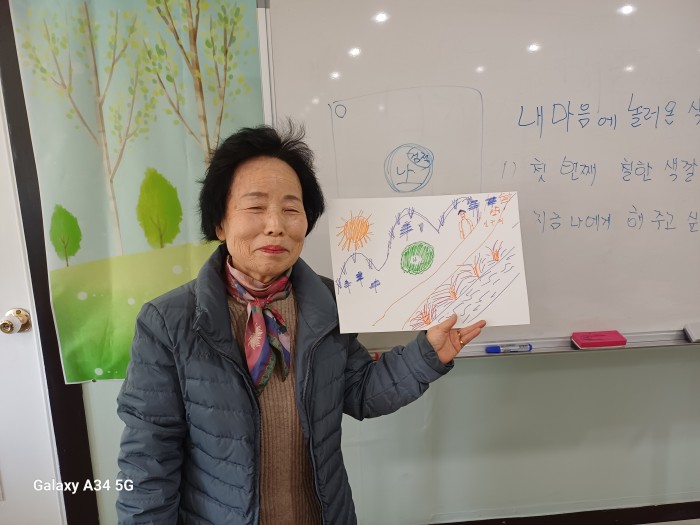 내 마음에 놀러온 색
1) 첫 번째 선한 색깔
지금 나에게 해 주고 싶
나
Galaxy A34 5G